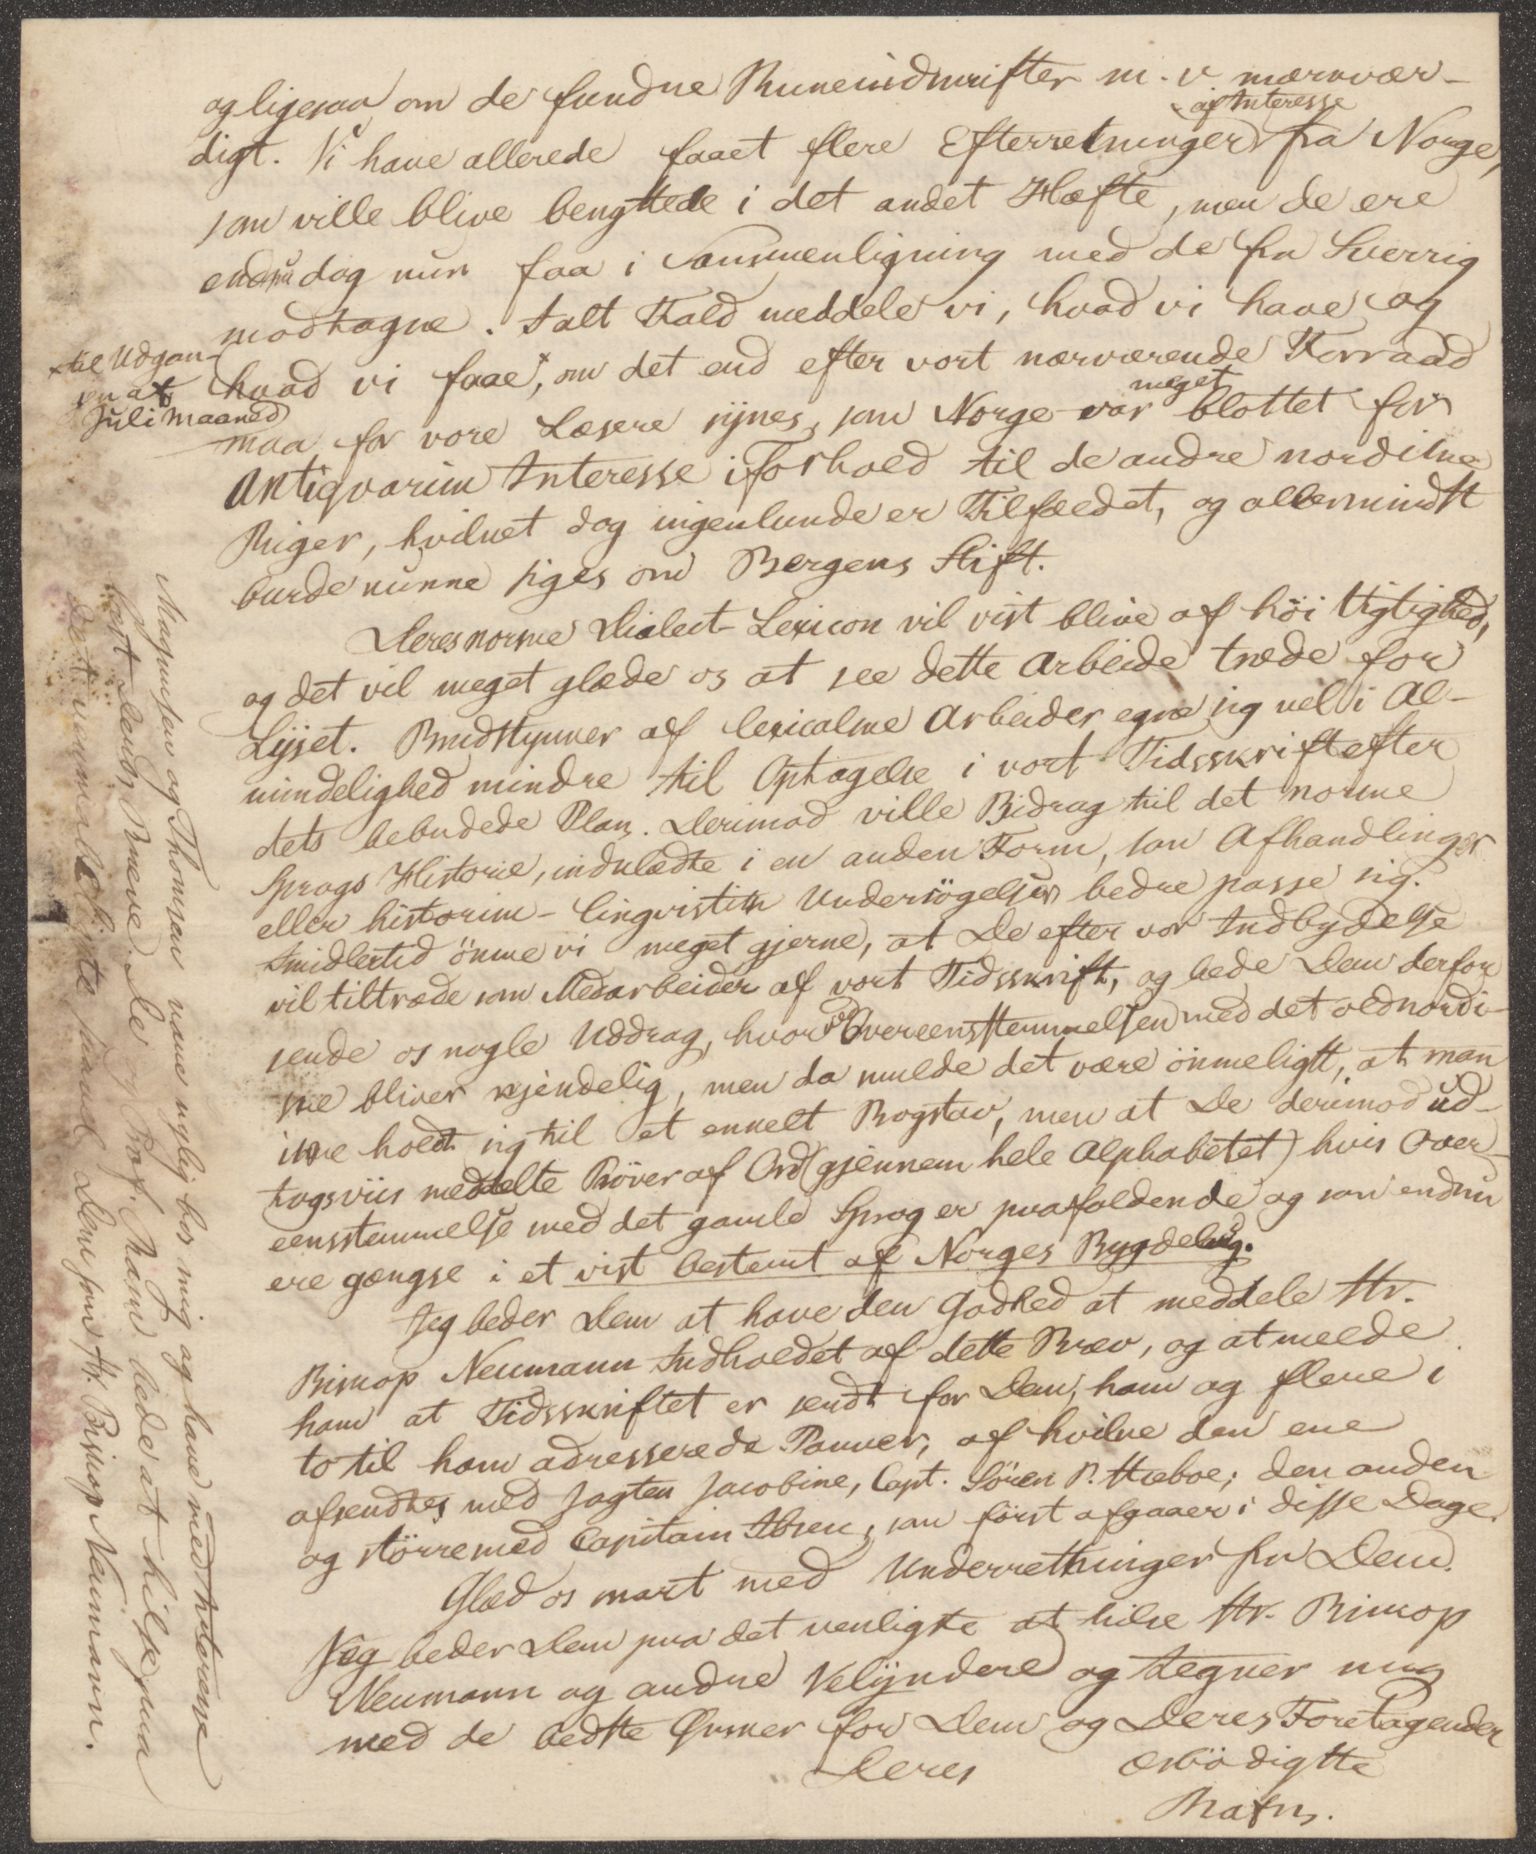 og ligesaa om de fundne Runeindskrifter m. v. mærkvær-
af Interesse
digt. Vi have allerede faaet flere Efterretninger fra Norge,
som ville blive benyttede i det andet Hæfte, men de ere
endnu dog kun faa i Sammenligning med de fra Sverrig
modtagne. I alt Fald meddele vi, hvad vi have og
× til Udgan-
gen af
Juli Maaned
hvad vi faae ×, om det end efter vort nærværende Forraad
meget
maa for vore Læsere synes, som Norge var blottet for
antiqvarisk Interesse i Forhold til de andre nordiske
Riger, hvilket dog ingenlunde er Tilfældet, og allermindst
burde kunne siges om Bergens Stift.
Deres norske Dialect-Lexicon vil vist blive af höi Vigtighed,
og det vil meget glæde os at see dette Arbeide træde for
Lyset. Brudstykker af lexicalske Arbeider egne sig vel i Al-
mindelighed mindre til Optagelse i vort Tidsskrift efter
dets bebudede Plan. Derimod ville Bidrag til det norske
Sprogs Historie, indklædte i en anden Form, som Afhandlinger
eller historisk-lingvistisk Undersögelser bedre passe sig.
Imidlertid önske vi meget gjerne, at De efter vor Indbydelse
vil tiltræde som Medarbeider af vort Tidsskrift, og bede Dem derfor
sende os nogle Uddrag, hvorved Overeensstemmelsen med det oldnordi-
ske bliver kjendelig, men da skulde det være önskeligst, at man
ikke holdt sig til et enkelt Bogstav, men at De derimod ud-
togsviis meddelte Pröver af Ord (gjennem hele Alphabetet) hvis Over-
eensstemmelse med det gamle Sprog er paafaldende og som endnu
ere gængse i et vist bestemt af Norges Bygdelag.
Jeg beder Dem at have den Godhed at meddele Hr.
Biskop Neumann Indholdet af dette Brev, og at melde
ham at Tidsskriftet er sendt for Dem, ham og flere i
to til ham adresserede Pakker, af hvilke den ene
afsendtes med Jagten Jacobine, Capt. Sören P. Hæboe; den anden
og större med Capitain Ibsen, som först afgaaer i disse Dage.
Glæd os snart med Underretninger fra Dem.
Jeg beder Dem paa det venligste at hilse Hr. Biskop
Neumann og andre Velyndere og tegner mig
med de bedste Ønsker for Dem og Deres Foretagender
Deres ærbödigste
Rafn.
Magnusen og Thomsen vare nylig hos mig og have med Interesse
læst Deres Breve. De og Prof. Rask bede at hilse paa
det venskabeligste saavel Dem som Hr. Biskop Neumann.